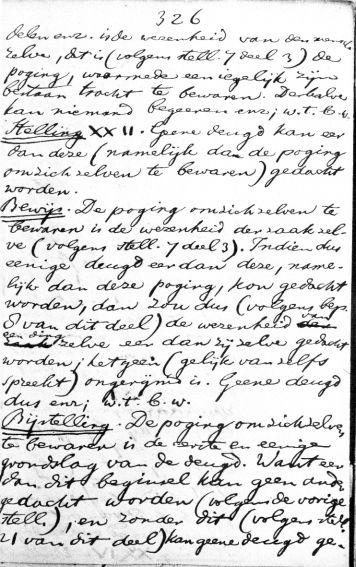 326
delen enz. is de wezenheid van den mensch
zelve, dit is (volgens stell. 7 deel 3) de
poging, waarmede een iegelijk zijn
bestaan tracht te bewaren. Derhalve
kan niemand begeeren enz; w.t.b.w.
Stelling XXII. Geene deugd kan eer
dan deze (namelijk dan de poging
om zich zelven te bewaren) gedacht
worden.
Bewijs. De poging om zich zelven te
bewaren is de wezenheid der zaak zel-
ve (volgens stell. 7 deel 3). Indien dus
eenige deugd eer dan deze, name-
lijk dan deze poging, kon gedacht
worden, dan zou dus (volgens bep.
8 van dit deel) de wezenheid van
een ding zelve eer dan zij zelve gedacht
worden; hetgeen (gelijk van zelfs
spreekt) ongerijmd is. Geene deugd
dus enz; w.t.b.w.
Bijstelling. De poging om zich zelven
te bewaren is de eerste en eenige
grondslag van de deugd. Want eer
dan dit beginsel kan geen ander
gedacht worden (volgens de vorige
stell.), en zonder dit (volgens stell.
21 van dit deel) kan geene deugd ge-